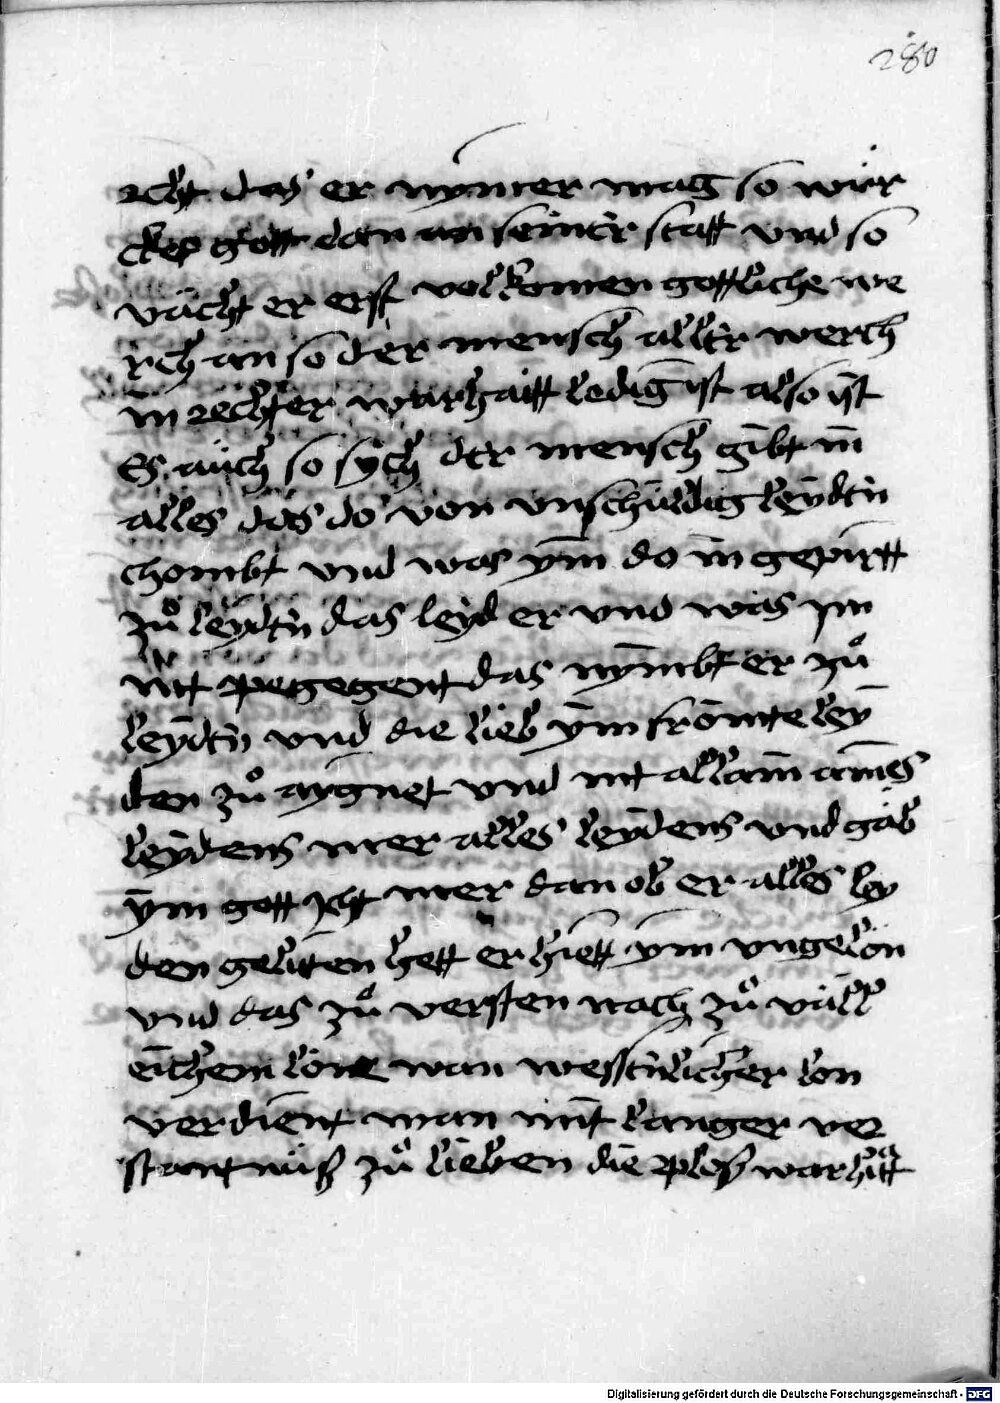 280
recht das er nymer mag so wür
cket gott dan an seiner statt vnd so
würcht er erst volkomen gottliche we
rch an so der mensch aller werch
in rechter warhaitt ledig ist also ist
Es auch so sych der mensch gibt in
alles das do von vnschuldig leydn
chombt vnd was ym do in gepirtt
zů leydn das leyd er vnd was ym
nit pegegent das nymbt er zů
leydn vnd die lieb ym frömte ley
den zů aygnet vnd nit allain aines
leydens mer alles leydens vnd gäb
ym gott icht mer dan ob er alles ley
den geliten hett er hiett ym vngelon
vnd das zů versten nach zů väll
eichem lone wan wesstnlicher lon
verdient man mit langer ver
stantnüß zů lieben die plos warhait
Digitalisierung gefördert durch die Deutsche Forschungsgemeinschaft - DFG